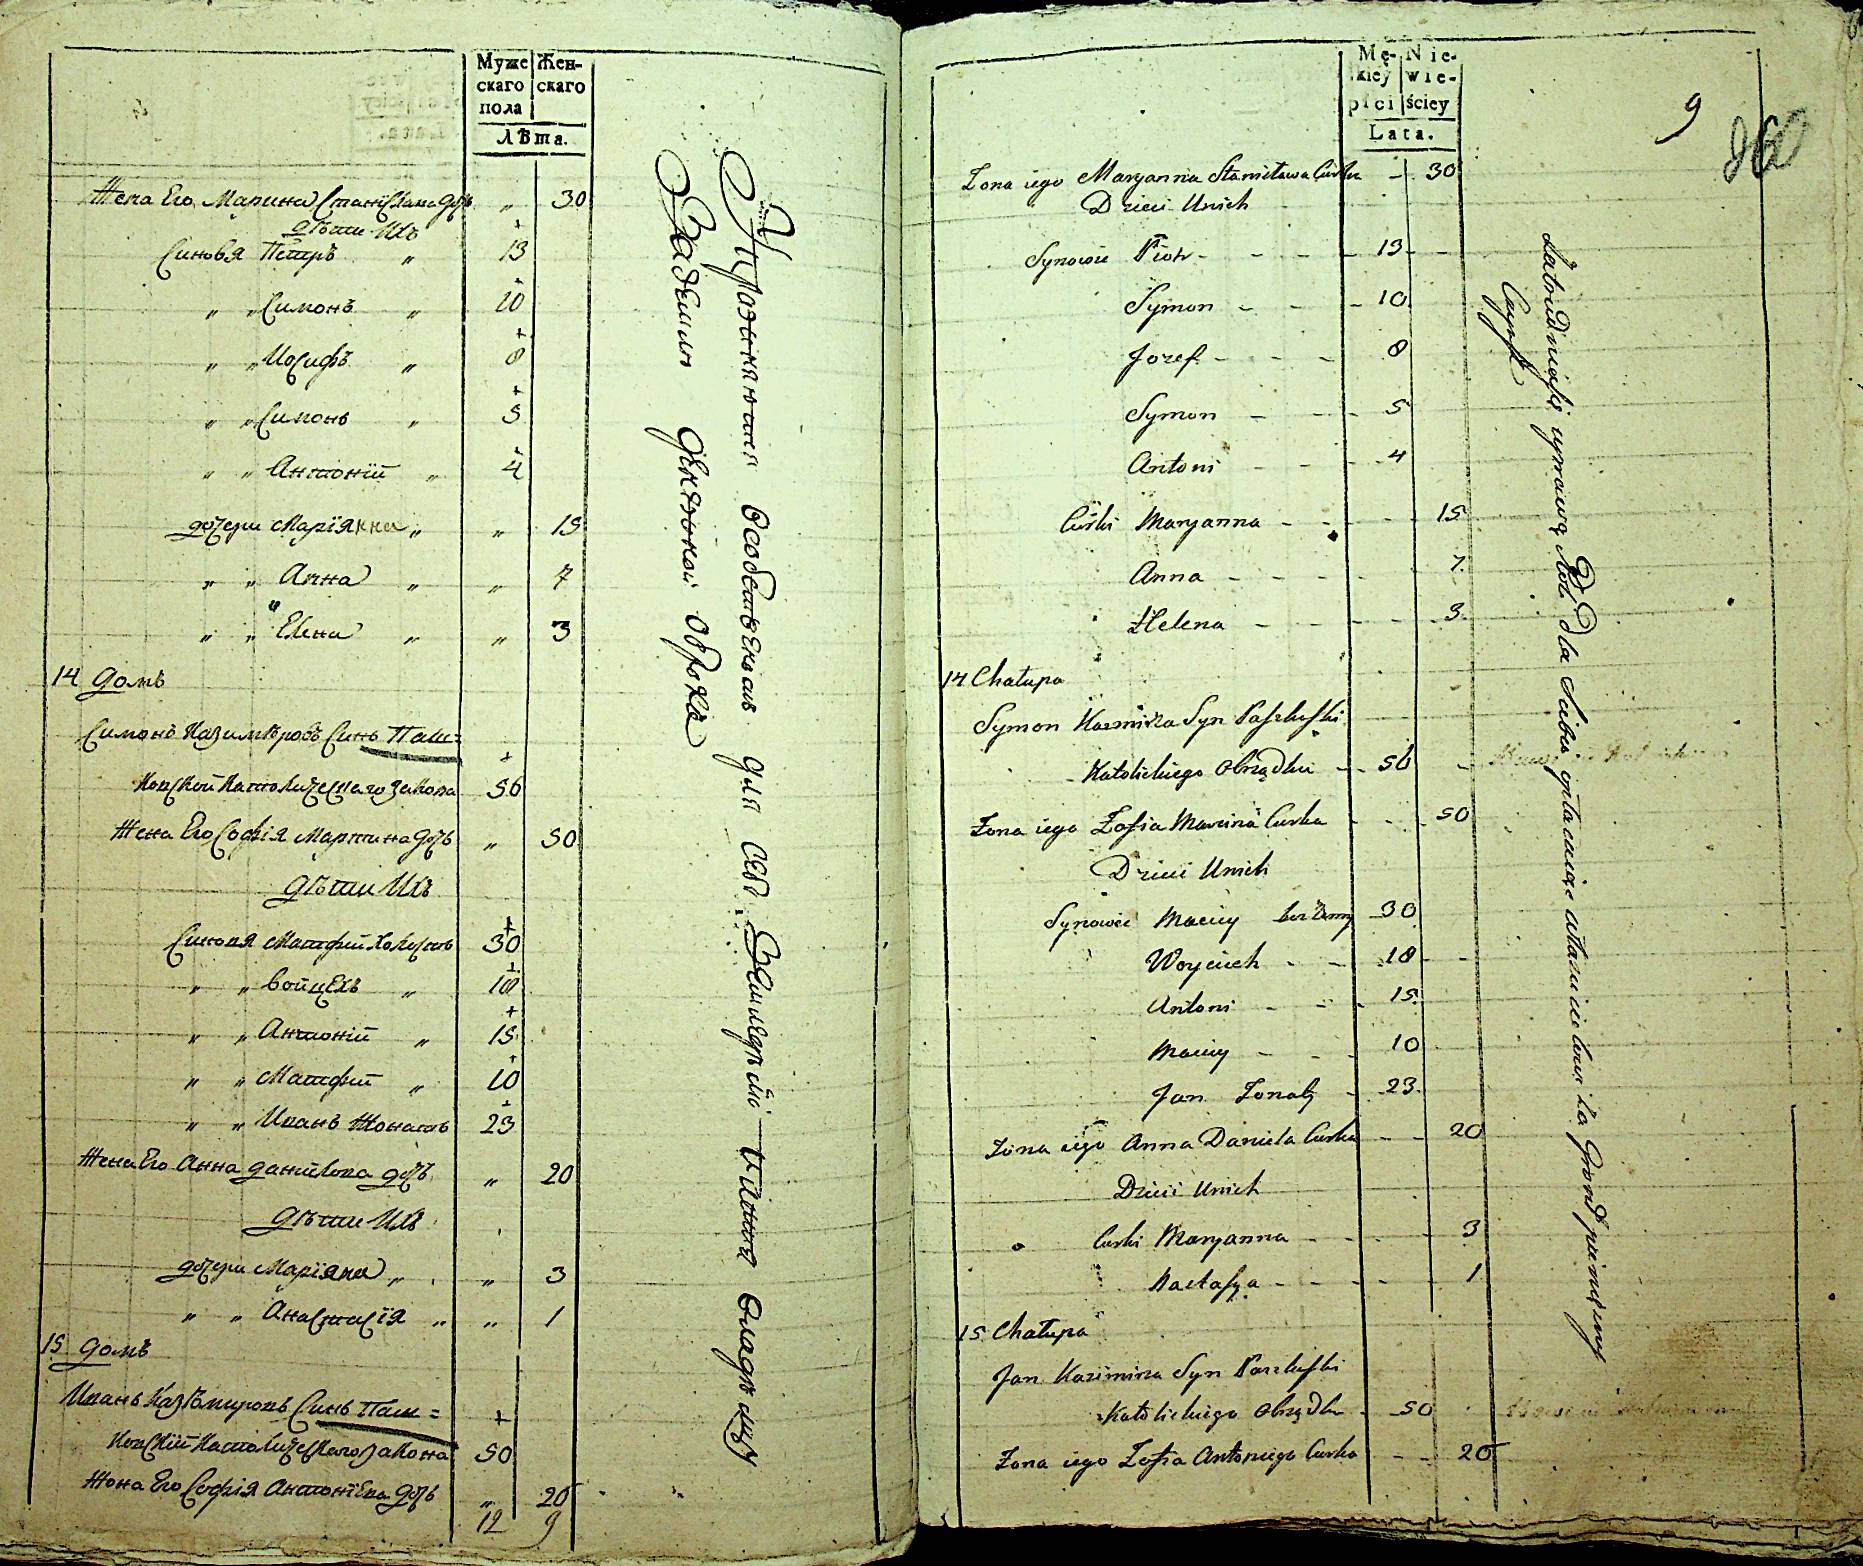 Муже Жен-
скаго скаго
пола
Лѣта.
Жена Его Марина Станїслава дочь „ 30
дѣти Ихъ
Синовя Петръ „ 13
„ „ Симонъ „ 10
„ „ Иосифъ „ 8
„ „ Симонъ „ 5
„ „ Антонїй „ 4
дочери Марїянна „ „ 15
„ „ Анна „ „ 7
„ „ Елена „ „ 3
14 домъ
Симонъ Казимѣровъ Синъ Паш=
ковской Католическаго Закона 56
Жена Его Софія Мартина дочь „ 50
дѣти Ихъ
Синовя Матфій Холостъ 30
„ „ Войцехъ „ 18
„ „ Антонїй „ 15
„ „ Матфій „ 10
„ „ Иванъ Жонатъ 23
Жена Его Анна данїлова дочь „ 20
дѣти Ихъ
дочери Марїяна „ „ 3
„ „ Анастасїя „ „ 1
15 домъ
Иванъ Казѣмировъ Синъ Паш=
ковскїй Католическаго Закона 50
Жона Его Софія Антонїева дочь „ 20
12 9
для себя
владѣльцу
За земли денежной оброкъ
Mę- Nie-
skiey wie-
płci ściey
Lata.
9
260
Żona iego Maryanna Stanisława Curka - 30
Dzieci Unich
Synowie Piotr - - - - 13 - -
Symon - - - 10
Jozef - - - 8
Symon - - - 5
Antoni - - - 4
Curki Maryanna - - - - 15
Anna - - - - 7
Helena - - - - - 3
14 Chałupa
Symon Kazimirza Syn Paszkufski
Katolickiego Obrządku - - 56 -
Żona iego Zofia Marcina Curka - - - 50
Dzieci Unich
Synowie Maciey bez żenny 30
Woyciech - - 18 - -
Antoni - - - 15
Maciey - - - 10
Jan Żonaty - 23
Żona iego Anna Daniela Curka - - 20
Dzieci Unich
Curki Maryanna - - - - 3
Nastasya - - - - - 1
15 Chałupa
Jan Kazimirza Syn Paszkufski
Katolickiego Obrządku - 50
Żona iego Zofia Antoniego Curka - - 20
uprawą Roli dla siebie opłacaiąc włascicielowi za Grond pieniężny
Czynsz